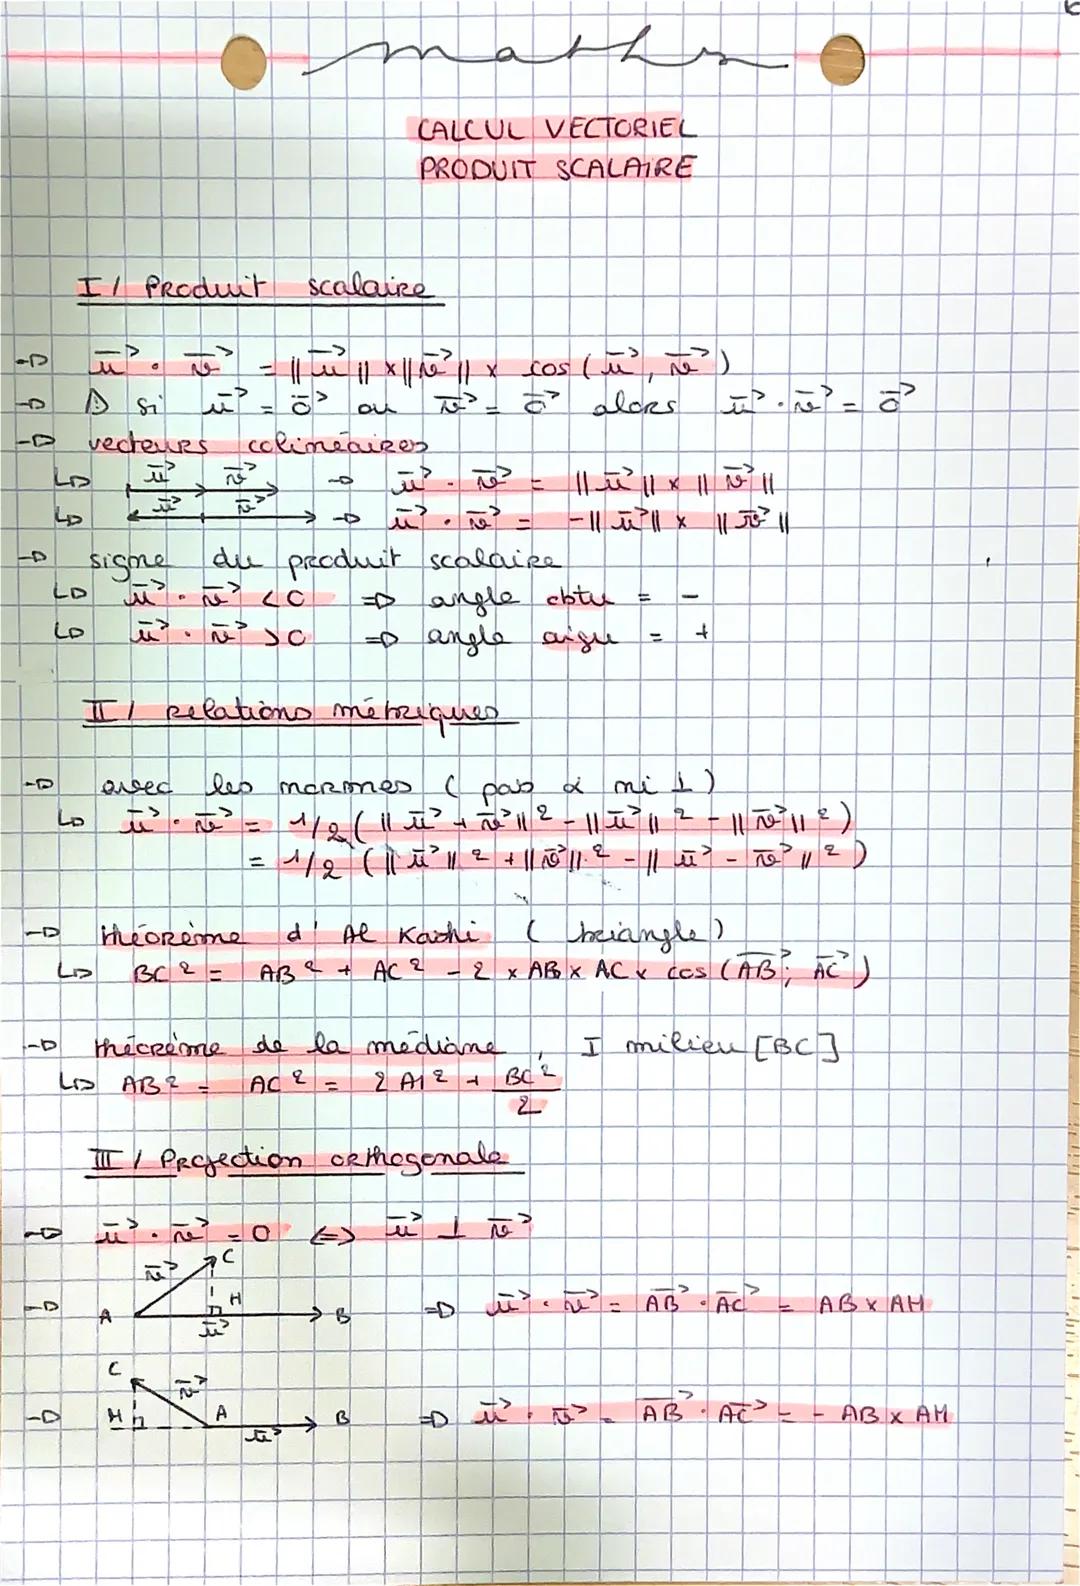 maths
CALCUL VECTORIEL
PRODUIT SCALAIRE
I / Produit scalaire
→ u⃗ · v⃗ = ||u⃗|| × ||v⃗|| × cos (u⃗, v⃗)
→ ⚠ si u⃗ = 0⃗ ou v⃗ = 0⃗ alors u⃗ · v⃗ = 0⃗
→ vecteurs colinéaires
↳ u⃗ v⃗ → u⃗ · v⃗ = ||u⃗|| × ||v⃗||
↳ u⃗ v⃗ → u⃗ · v⃗ = -||u⃗|| × ||v⃗||
→ signe du produit scalaire
↳ u⃗ · v⃗ < 0 ⇒ angle obtu = -
↳ u⃗ · v⃗ > 0 ⇒ angle aigu = +
II / Relations métriques
→ avec les normes ( pas α ni ⊥ )
↳ u⃗ · v⃗ = 1/2 ( ||u⃗ + v⃗||² - ||u⃗||² - ||v⃗||² )
= 1/2 ( ||u⃗||² + ||v⃗||² - ||u⃗ - v⃗||² )
→ théorème d'Al Kashi ( triangle )
↳ BC² = AB² + AC² - 2 × AB × AC × cos (AB⃗ ; AC⃗)
→ théorème de la médiane , I milieu [BC]
↳ AB² = AC² = 2 AI² + BC²/2
III / Projection orthogonale
→ u⃗ · v⃗ = 0 ⇔ u⃗ ⊥ v⃗
v⃗ C
→ A H u⃗ B ⇒ u⃗ · v⃗ = AB⃗ · AC⃗ = AB × AH
C v⃗
→ H A u⃗ B ⇒ u⃗ · v⃗ = AB⃗ · AC⃗ = - AB × AH